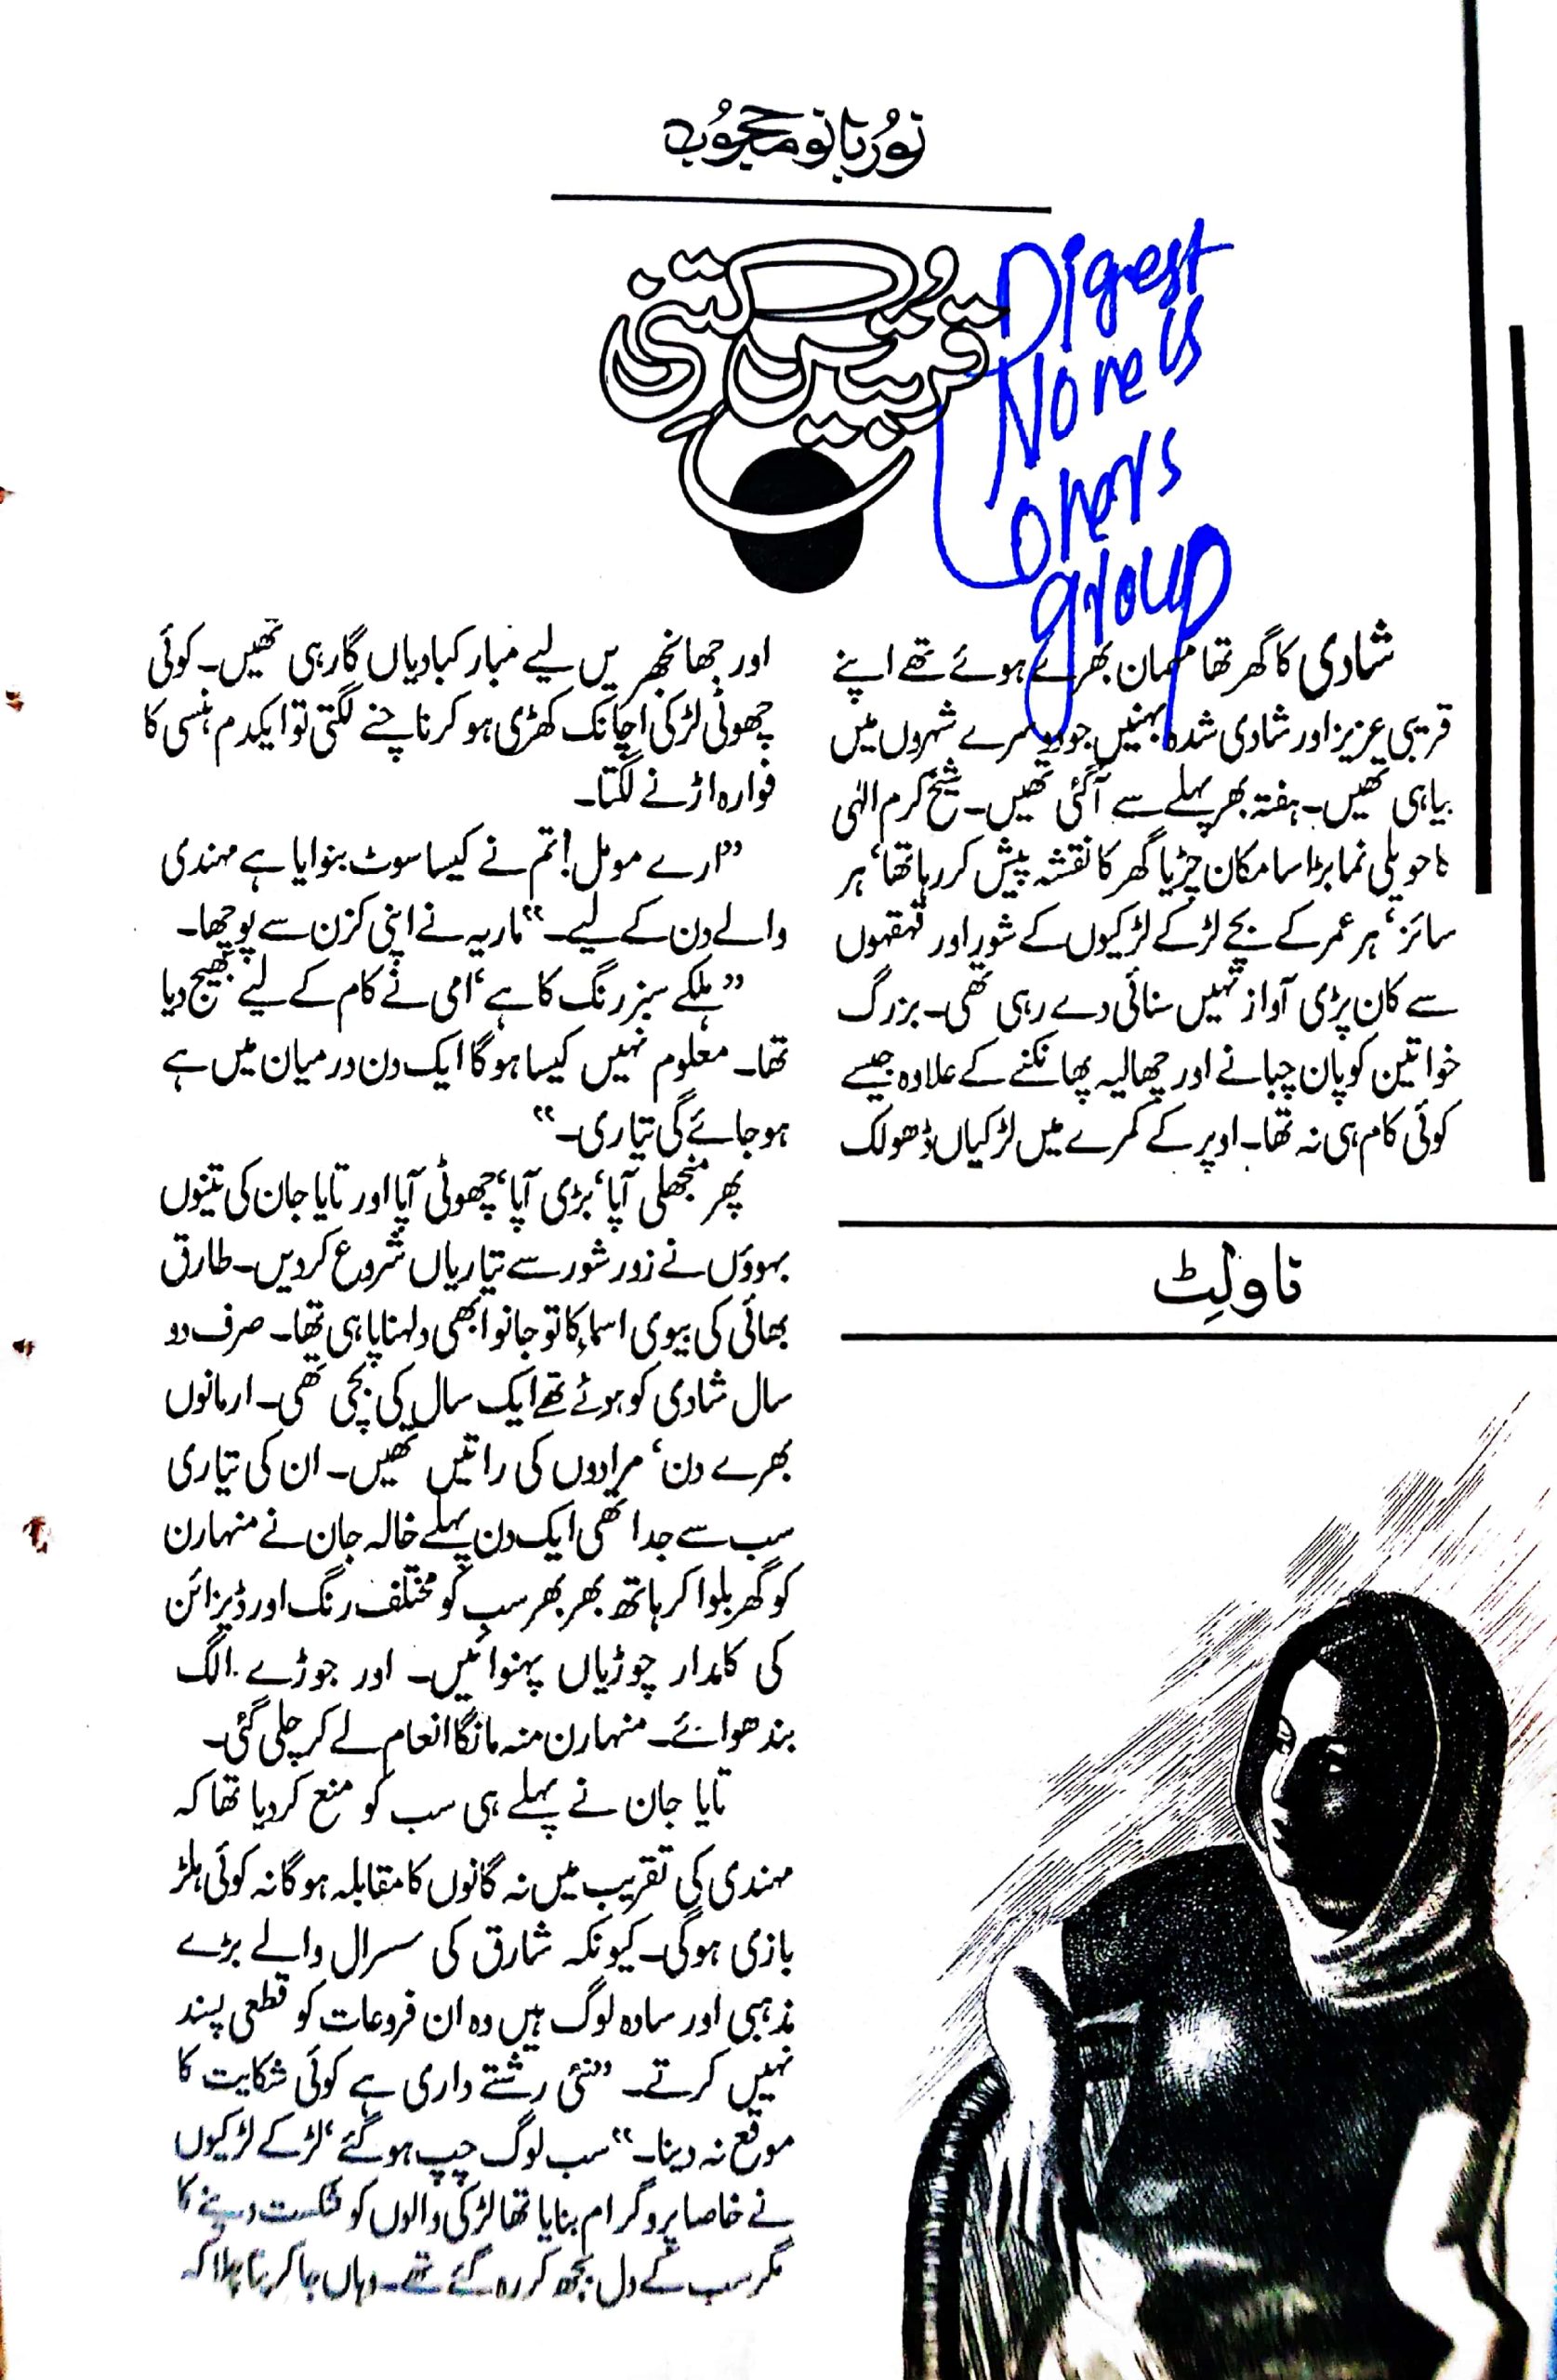 نور بانو محجوب
قربتیں کتنی
Digest
Novels
Lovers
group
شادی کا گھر تھا مہمان بھرے ہوئے تھے اپنے
قریبی عزیز اور شادی شدہ بہنیں جو دوسرے شہروں میں
بیاہی تھیں۔ ہفتہ بھر پہلے سے آگئی تھیں۔ شیخ کرم الٰہی
کا حویلی نما بڑا سا مکان چڑیا گھر کا نقشہ پیش کر رہا تھا‘ ہر
سائز‘ ہر عمر کے بچے لڑکے لڑکیوں کے شور اور قہقہوں
سے کان پڑی آواز نہیں سنائی دے رہی تھی۔ بزرگ
خواتین کو پان چبانے اور چھالیہ پھانکنے کے علاوہ جیسے
کوئی کام ہی نہ تھا۔ اوپر کے کمرے میں لڑکیاں ڈھولک
ناولٹ
اور جھانجھریں لیے مبارکبادیاں گا رہی تھیں۔ کوئی
چھوٹی لڑکی اچانک کھڑی ہو کر ناچنے لگتی تو ایکدم ہنسی کا
فوارہ اڑنے لگتا۔
”ارے مومل! تم نے کیسا سوٹ بنوایا ہے مہندی
والے دن کے لیے۔“ ماریہ نے اپنی کزن سے پوچھا۔
”ہلکے سبز رنگ کا ہے‘ امی نے کام کے لیے بھیج دیا
تھا۔ معلوم نہیں کیسا ہوگا ایک دن درمیان میں ہے
ہو جائے گی تیاری۔“
پھر منجھلی آپا‘ بڑی آپا‘ چھوٹی آپا اور تایا جان کی تینوں
بہوؤں نے زور شور سے تیاریاں شروع کردیں۔ طارق
بھائی کی بیوی اسماء کا تو جانو ابھی دلہناپا ہی تھا۔ صرف دو
سال شادی کو ہوئے تھے ایک سال کی بچی تھی۔ ارمانوں
بھرے دن‘ مرادوں کی راتیں تھیں۔ ان کی تیاری
سب سے جدا تھی ایک دن پہلے خالہ جان نے منہارن
کو گھر بلوا کر ہاتھ بھر بھر سب کو مختلف رنگ اور ڈیزائن
کی کامدار چوڑیاں پہنوائیں۔ اور جوڑے الگ
بندھوائے۔ منہارن منہ مانگا انعام لے کر چلی گئی۔
تایا جان نے پہلے ہی سب کو منع کردیا تھا کہ
مہندی کی تقریب میں نہ گانوں کا مقابلہ ہوگا نہ کوئی ہلڑ
بازی ہوگی۔ کیونکہ شارق کی سسرال والے بڑے
مذہبی اور سادہ لوگ ہیں وہ ان فروعات کو قطعی پسند
نہیں کرتے۔ ”نئی رشتے داری ہے کوئی شکایت کا
موقع نہ دینا۔“ سب لوگ چپ ہوگئے‘ لڑکے لڑکیوں
نے خاصا پروگرام بنایا تھا لڑکی والوں کو شکست دینے کا
مگر سب کے دل بجھ کر رہ گئے تھے۔ وہاں جا کر پتا چلا کہ